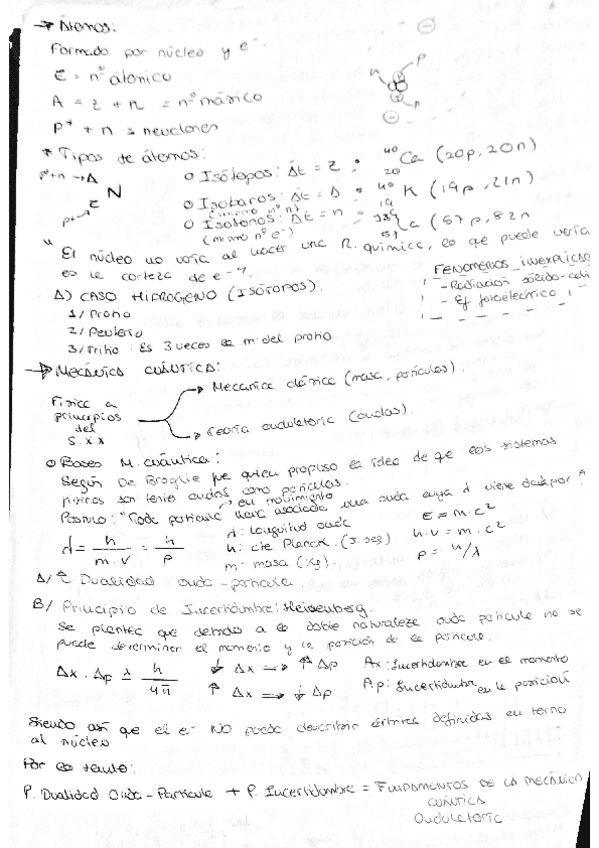 → Átomos:
Formado por núcleo y e⁻.
Z = nº átomico
A = z + n = nº másico
p⁺ + n = neuclones
n p
* Tipos de átomos:
p⁺+n → A
Z N
p⁺
o Isótopos: Át = z : ⁴⁰₂₀Ca (20p, 20n)
o Isobaros: Át = A : ⁴⁰₁₉K (19p, 21n)
(mismo nº n)
o Isotonos: Át = n = ¹³⁹₅₇La (57p, 82n
(mismo nº e⁻)
" El núcleo no varía al hacer una R. química, lo que puede varia
es la corteza de e⁻".
FENOMENOS INEXPLICAB
- Radiación sólido-cali
- Ef fotoeléctrico
A) CASO HIDROGENO (ISÓTOPOS).
1/ Protio
2/ Deuterio
3/ Tritio: Es 3 veces m. del protio.
→ MECÁNICA CUÁNTICA:
Física a
principios
del
S. XX
→ Mecanica clásica (masa, partículas).
→ Teoría ondulatoria (ondas).
o Bases M. cuántica:
Según De Broglie fue quien propuso la idea de que los sistemas
físicos son tenio ondas como particulas.
en movimiento
Postulo: "Toda particula lleva asociada una onda cuya λ viene dada por:
λ = h / m · v = h / p
λ: longitud onda
h: cte Planck. (J. seg)
m: masa (Kg).
E = m · c²
h · v = m · c²
p = h/λ
A/ Dualidad onda-particula.
B/ Principio de Incertidumbre: Heisenberg.
Se plantea que debido a la doble naturaleza onda particula no se
puede determinar el momento y la posición de la particula.
Δx · Δp ≥ h / 4π
↓ Δx => ↑ Δp
↑ Δx => ↓ Δp
Δx: Incertidumbre en el momento
Δp: Incertidumbre en la posición
Siendo así que el e⁻ No puede describir órbitas definidas en torno
al núcleo
Por lo tanto:
P. Dualidad Onda-Particula + P. Incertidumbre = FUNDAMENTOS DE LA MECÁNICA
CUÁNTICA
ONDULATORIA